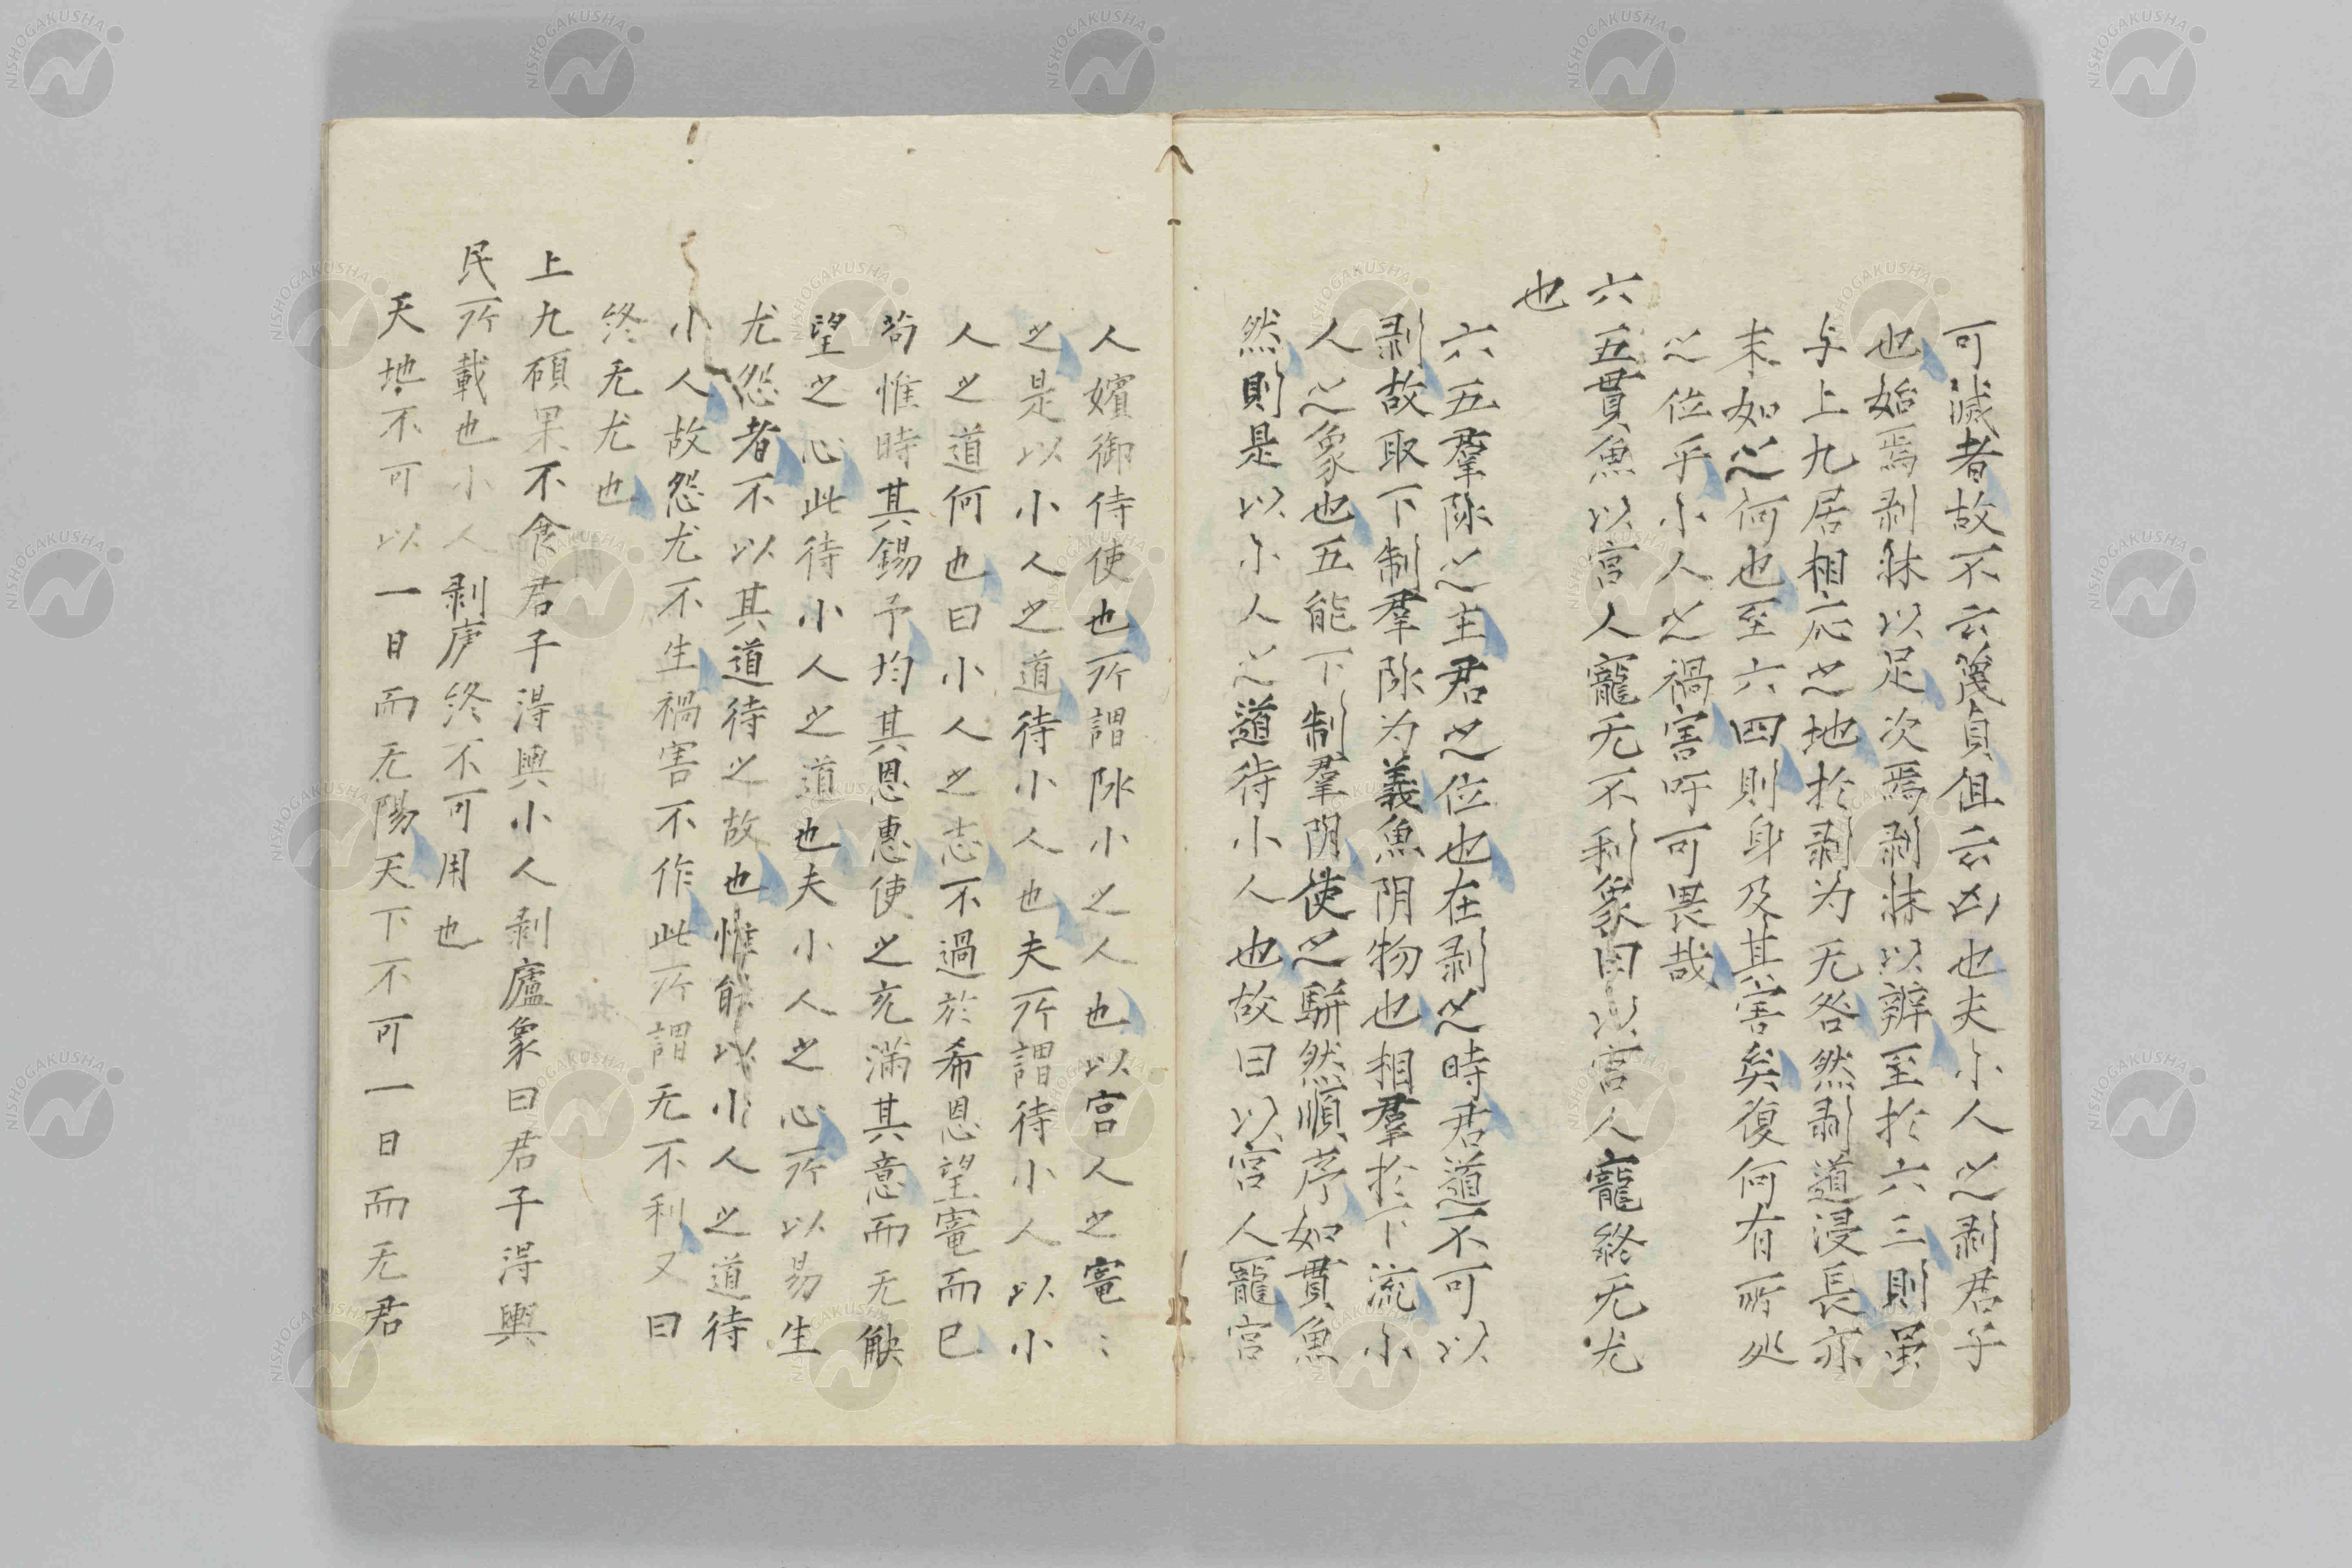 可滅者故不云蔑貞但云凶也夫小人之剥君子
也始焉剥牀以足次焉剥牀以辨至於六三則虽
与上九居相応之地於剥为无咎然剥道浸長亦
末如之何也至六四則身及其害矣復何有所处
之位乎小人之禍害吁可畏哉
六五貫魚以宫人寵无不利象曰以宫人寵终无尤
也
六五羣阴之主君之位也在剥之時君道不可以
剥故取下制羣阴为義魚阴物也相羣於下流小
人之象也五能下制羣阴使之駢然順序如貫魚
然則是以小人之道待小人也故曰以宫人寵宫
人嬪御侍使也所謂阴小之人也以宫人之寵〻
之是以小人之道待小人也夫所謂待小人以小
人之道何也曰小人之志不過於希恩望寵而已
苟惟時其錫予均其恩惠使之充滿其意而无觖
望之心此待小人之道也夫小人之心所以易生
尤怨者不以其道待之故也惟能以小人之道待
小人故怨尤不生禍害不作此所謂无不利又曰
终无尤也
上九碩果不食君子淂輿小人剥廬象曰君子淂輿
民所載也小人剥庐终不可用也
天地不可以一日而无陽天下不可一日而无君
NISHOGAKUSHA